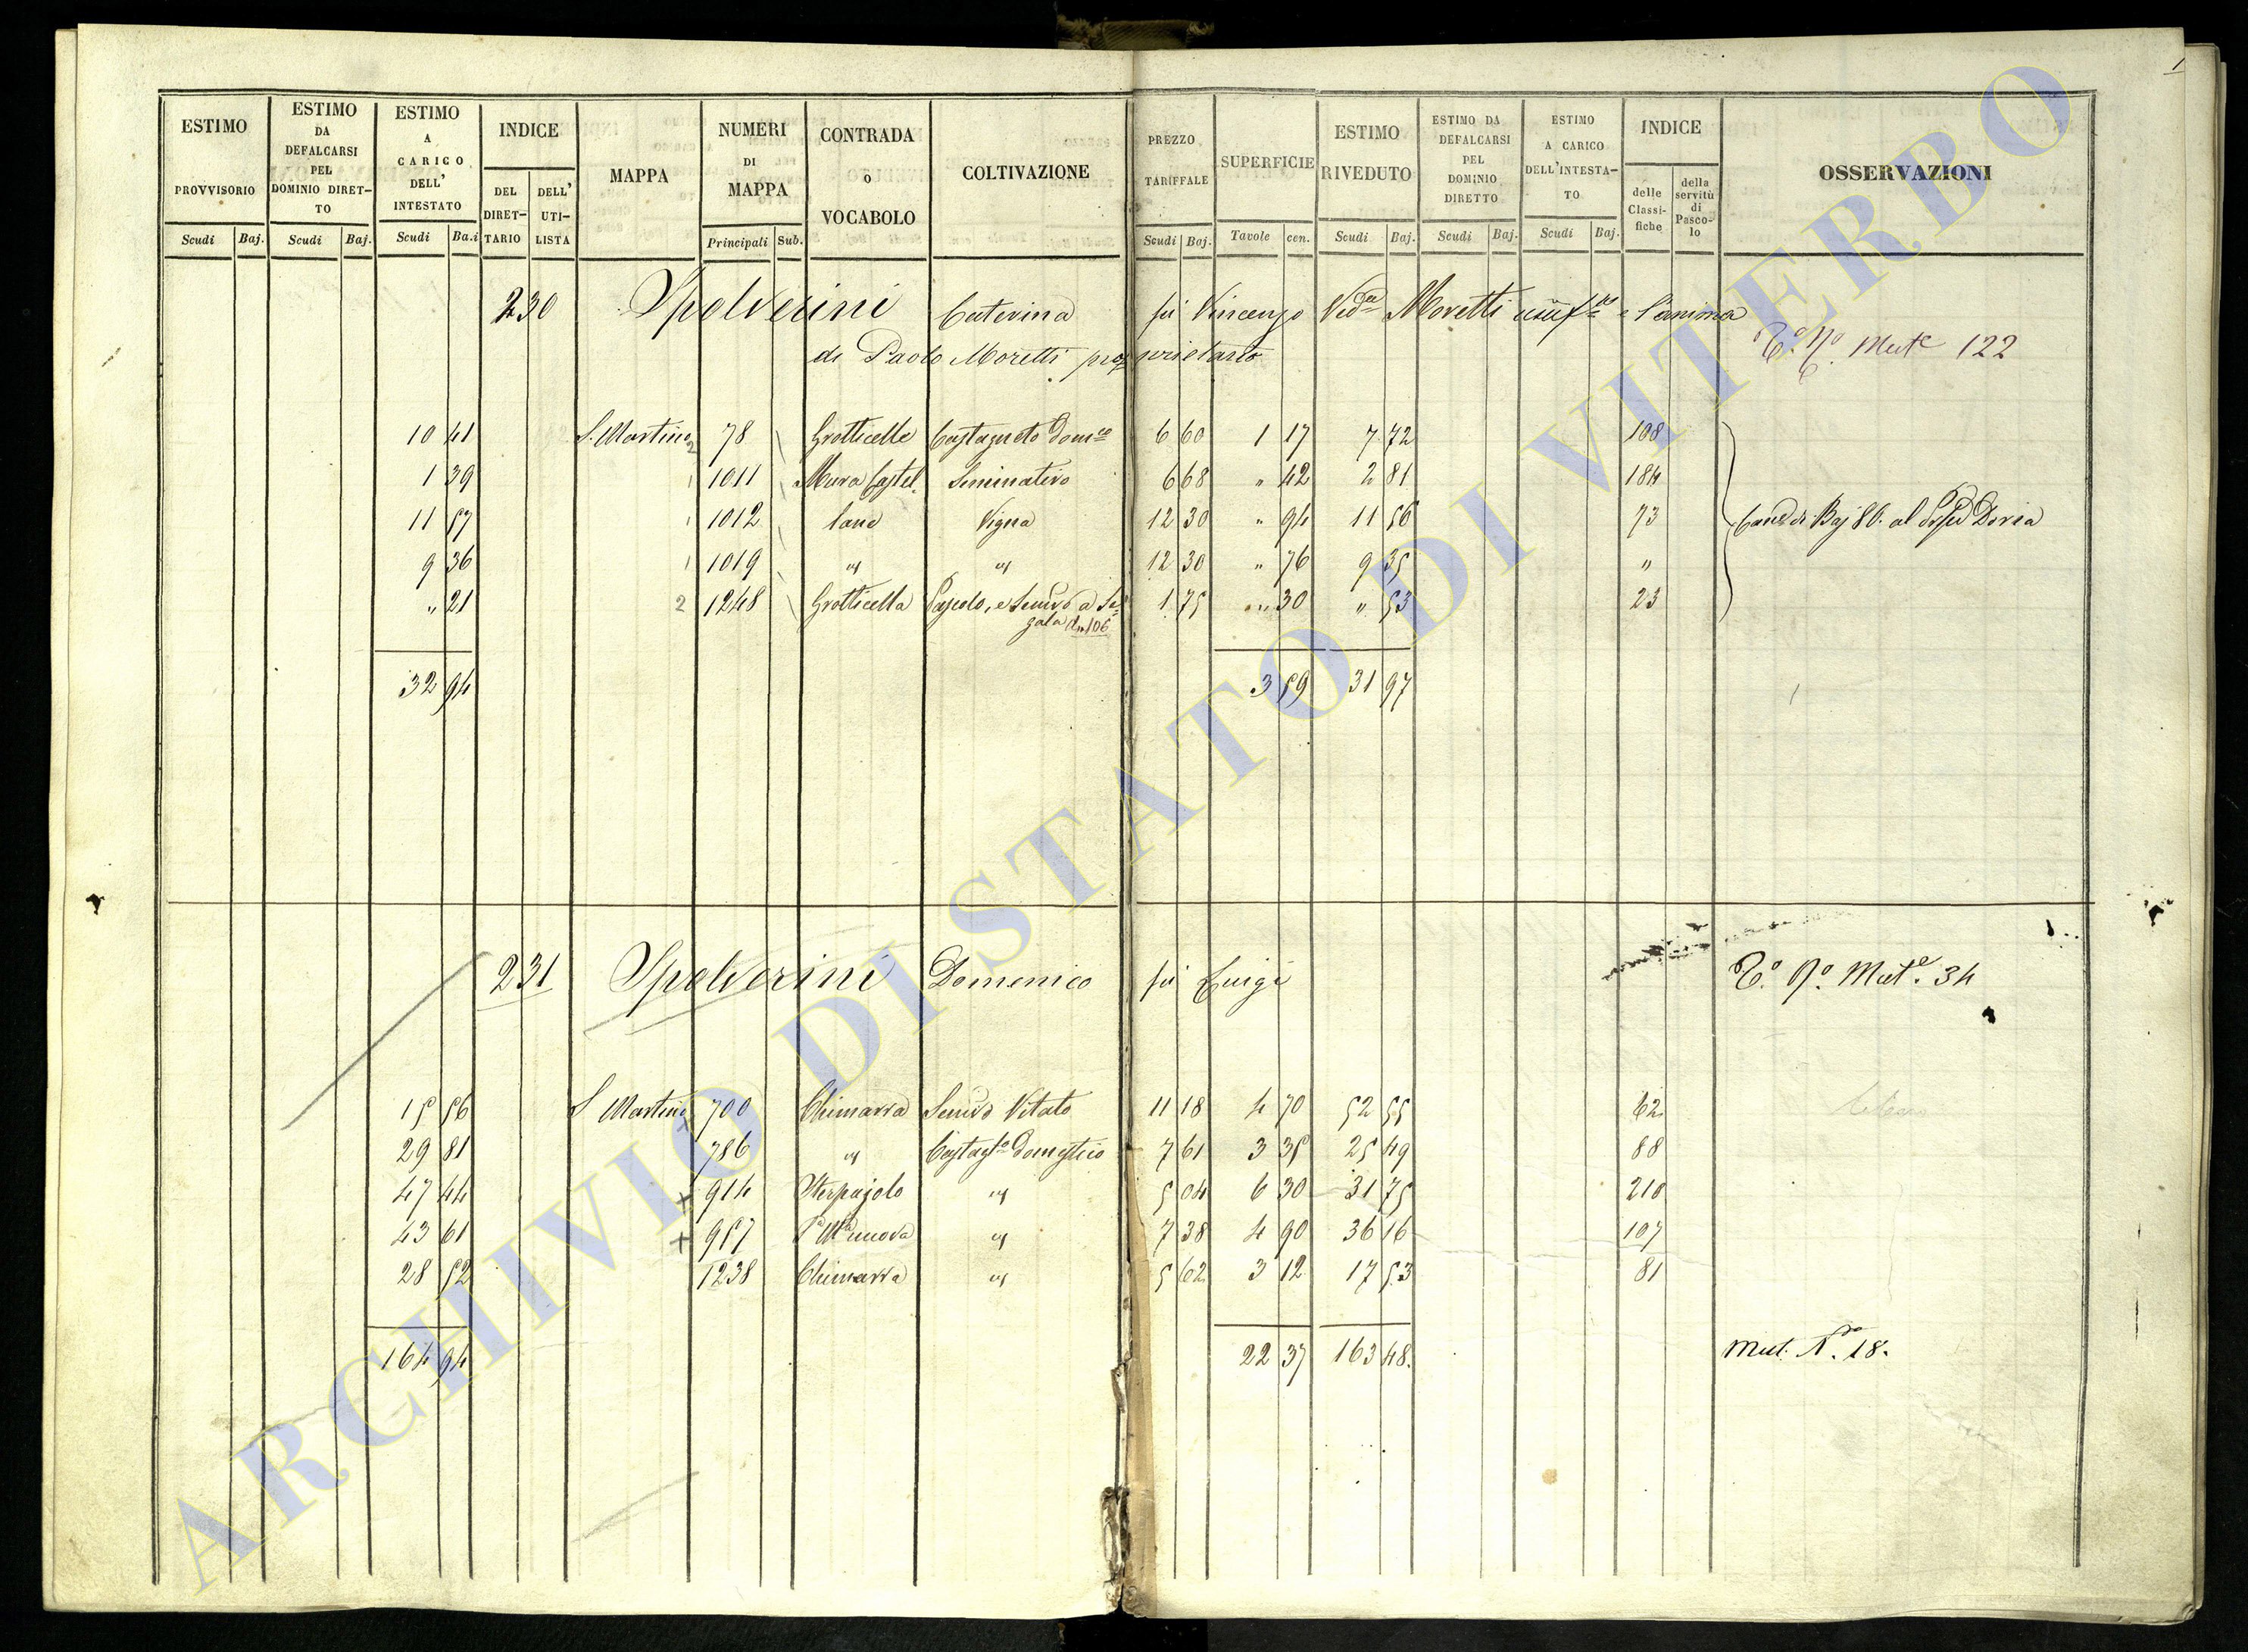 1
ESTIMO PROVVISORIO
ESTIMO DA DEFALCARSI PEL DOMINIO DIRET-TO
ESTIMO A CARICO DELL' INTESTATO
INDICE
DEL DIRET-TARIO
DELL' UTI-LISTA
MAPPA
NUMERI DI MAPPA
CONTRADA ò VOCABOLO
COLTIVAZIONE
PREZZO TARIFFALE
SUPERFICIE
ESTIMO RIVEDUTO
ESTIMO DA DEFALCARSI PEL DOMINIO DIRETTO
ESTIMO A CARICO DELL'INTESTA-TO
INDICE
delle Classi-fiche
della servitù di Pasco-lo
OSSERVAZIONI
Scudi Baj. Scudi Baj. Scudi Ba.i Principali Sub. Scudi Baj. Tavole cen. Scudi Baj. Scudi Baj. Scudi Baj.
230 Spolverini Caterina fu Vincenzo Ved.a Moretti usuf.a e l'anima
di Paolo Moretti proprietario
Mut.e 122
10 41 S. Martino 2 78 Grotticelle Castagneto Dom.co 6 60 1 17 7 72 108
1 39 1 1011 Mura Castel Seminativo 6 68 " 42 2 81 184
11 57 1 1012 lane Vigna 12 30 " 94 11 56 73 Can.e di Baj 80. al Doria
9 36 1 1019 " " 12 30 " 76 9 35 "
" 21 2 1248 Grotticella Pascolo, e Semvo a Se=
gala 106 1 75 " 30 " 53 23
32 94 3 59 31 97
231 Spolverini Domenico fu Luigi Mut.e 34
15 56 S Martino 700 Chimarra Semvo Vitato 11 18 4 70 52 55 62
29 81 786 " Castagto Domestico 7 61 3 35 25 49 88
47 44 + 914 Sterpajolo " 5 04 6 30 31 75 210
43 61 + 957 nuova " 7 38 4 90 36 16 107
28 52 1238 Chimarra " 5 62 3 12 17 53 81
164 94 22 37 163 48. Mut. N.ro 18.
ARCHIVIO DI STATO DI VITERBO